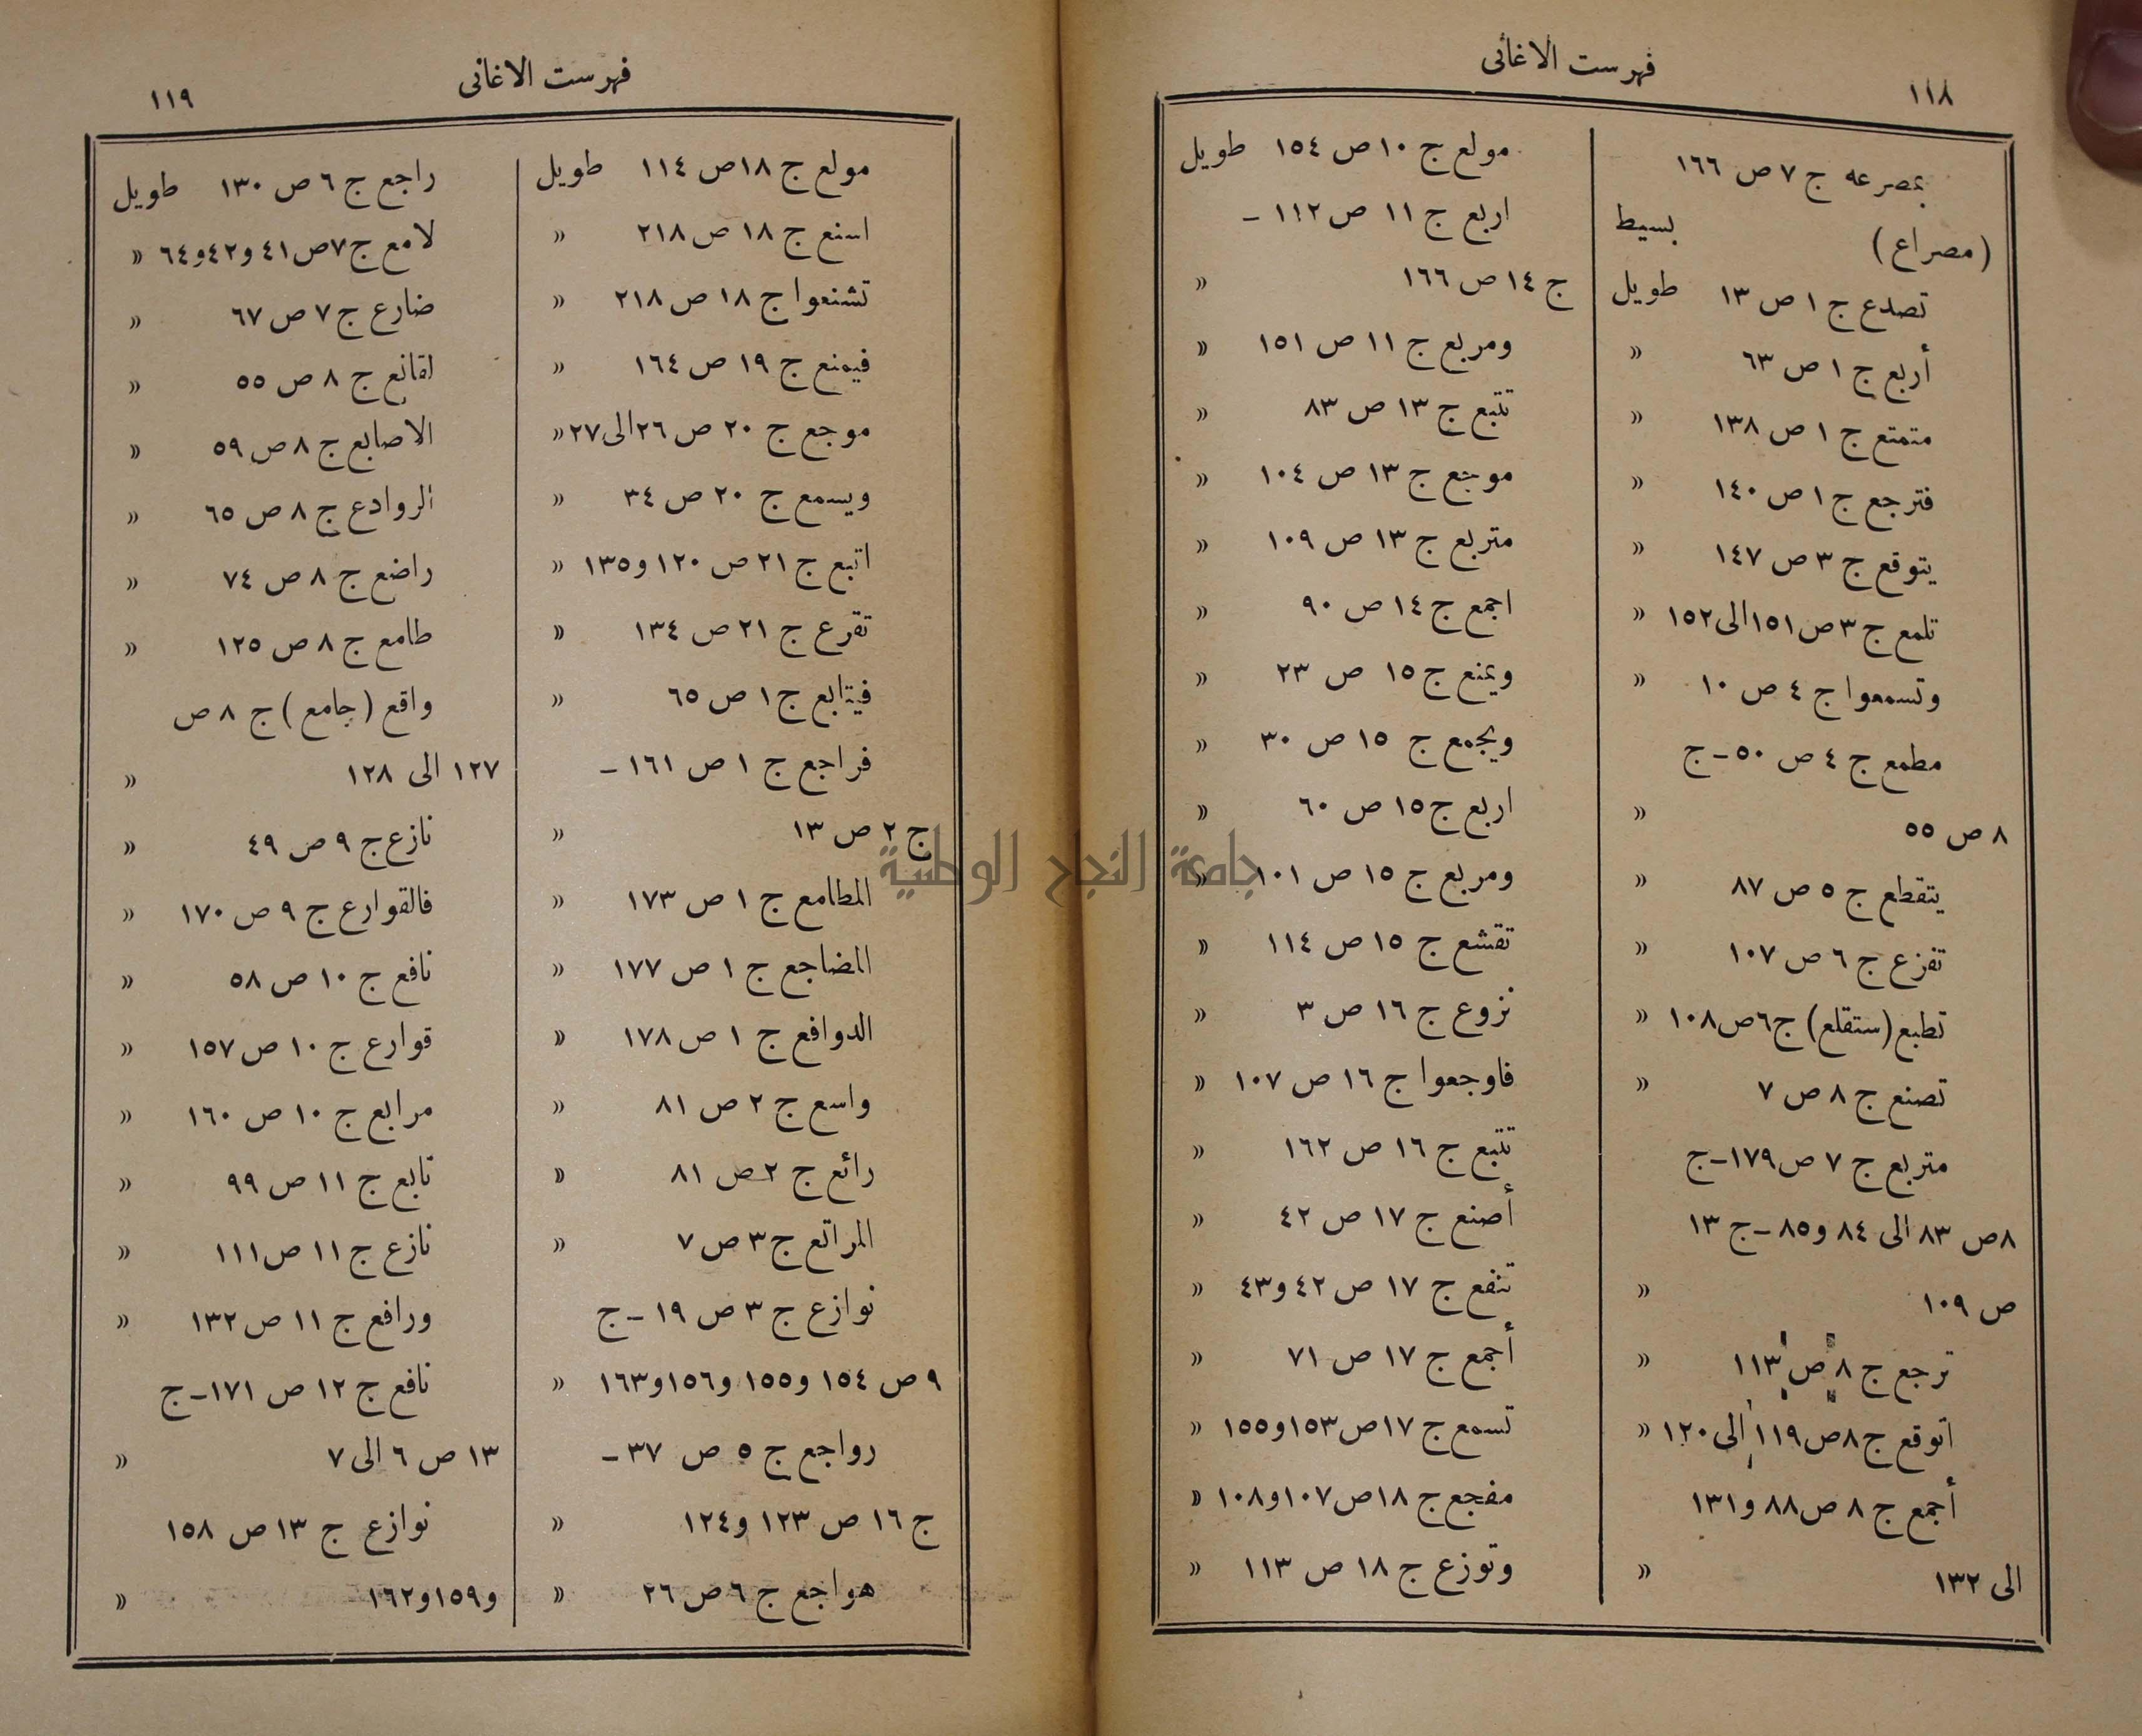 فهرست الاغانى
١١٨
بمصرعه ج ٧ ص ١٦٦
(مصراع) بسيط
تصدع ج ١ ص ١٣ طويل
أربع ج ١ ص ٦٣ »
متمتع ج ١ ص ١٣٨ »
فترجع ج ١ ص ١٤٠ »
يتوقع ج ٣ ص ١٤٧ »
تلمع ج ٣ ص ١٥١ الى ١٥٢ »
وتسمعوا ج ٤ ص ١٠ »
مطمع ج ٤ ص ٥٠ ـ ج
٨ ص ٥٥ »
يتقطع ج ٥ ص ٨٧ »
تفزع ج ٦ ص ١٠٧ »
تطبع (ستقلع) ج ٦ ص ١٠٨ »
تصنع ج ٨ ص ٧ »
متربع ج ٧ ص ١٧٩ ـ ج
٨ ص ٨٣ الى ٨٤ و ٨٥ ـ ج ١٣
ص ١٠٩ »
ترجع ج ٨ ص ١١٣ »
اتوقع ج ٨ ص ١١٩ الى ١٢٠ »
أجمع ج ٨ ص ٨٨ و ١٣١
الى ١٣٢ »
مولع ج ١٠ ص ١٥٤ طويل
اربع ج ١١ ص ١١٢ ـ
ج ١٤ ص ١٦٦ »
ومربع ج ١١ ص ١٥١ »
تتبع ج ١٣ ص ٨٣ »
موجع ج ١٣ ص ١٠٤ »
متربع ج ١٣ ص ١٠٩ »
اجمع ج ١٤ ص ٩٠ »
ويمنع ج ١٥ ص ٢٣ »
ويجمع ج ١٥ ص ٣٠ »
اربع ج ١٥ ص ٦٠ »
ومربع ج ١٥ ص ١٠١ »
تقشع ج ١٥ ص ١١٤ »
نزوع ج ١٦ ص ٣ »
فاوجعوا ج ١٦ ص ١٠٧ »
تتبع ج ١٦ ص ١٦٢ »
أصنع ج ١٧ ص ٤٢ »
تنفع ج ١٧ ص ٤٢ و ٤٣ »
أجمع ج ١٧ ص ٧١ »
تسمع ج ١٧ ص ١٥٣ و ١٥٥ »
مفجع ج ١٨ ص ١٠٧ و ١٠٨ »
وتوزع ج ١٨ ص ١١٣ »
فهرست الاغانى
١١٩
مولع ج ١٨ ص ١١٤ طويل
اسنع ج ١٨ ص ٢١٨ »
تشنعوا ج ١٨ ص ٢١٨ »
فيمنع ج ١٩ ص ١٦٤ »
موجع ج ٢٠ ص ٢٦ الى ٢٧ »
ويسمع ج ٢٠ ص ٣٤ »
اتبع ج ٢١ ص ١٢٠ و ١٣٥ »
تقرع ج ٢١ ص ١٣٤ »
فيتابع ج ١ ص ٦٥ »
فراجع ج ١ ص ١٦١ ـ
ج ٢ ص ١٣ »
المطامع ج ١ ص ١٧٣ »
المضاجع ج ١ ص ١٧٧ »
الدوافع ج ١ ص ١٧٨ »
واسع ج ٢ ص ٨١ »
رائع ج ٢ ص ٨١ »
المراتع ج ٣ ص ٧ »
نوازع ج ٣ ص ١٩ ـ ج
٩ ص ١٥٤ و ١٥٥ و ١٥٦ و ١٦٣ »
رواجع ج ٥ ص ٣٧ ـ
ج ١٦ ص ١٢٣ و ١٢٤ »
هواجع ج ٦ ص ٢٦ »
راجع ج ٦ ص ١٣٠ طويل
لامع ج ٧ ص ٤١ و ٤٢ و ٦٤ »
ضارع ج ٧ ص ٦٧ »
لقانع ج ٨ ص ٥٥ »
الاصابع ج ٨ ص ٥٩ »
الروادع ج ٨ ص ٦٥ »
راضع ج ٨ ص ٧٤ »
طامع ج ٨ ص ١٢٥ »
واقع (جامع) ج ٨ ص
١٢٧ الى ١٢٨ »
نازع ج ٩ ص ٤٩ »
فالقوارع ج ٩ ص ١٧٠ »
نافع ج ١٠ ص ٥٨ »
قوارع ج ١٠ ص ١٥٧ »
مرابع ج ١٠ ص ١٦٠ »
تابع ج ١١ ص ٩٩ »
نازع ج ١١ ص ١١١ »
ورافع ج ١١ ص ١٣٢ »
نافع ج ١٢ ص ١٧١ ـ ج
١٣ ص ٦ الى ٧ »
نوازع ج ١٣ ص ١٥٨
و ١٥٩ و ١٦٢ »
جامعة النجاح الوطنية